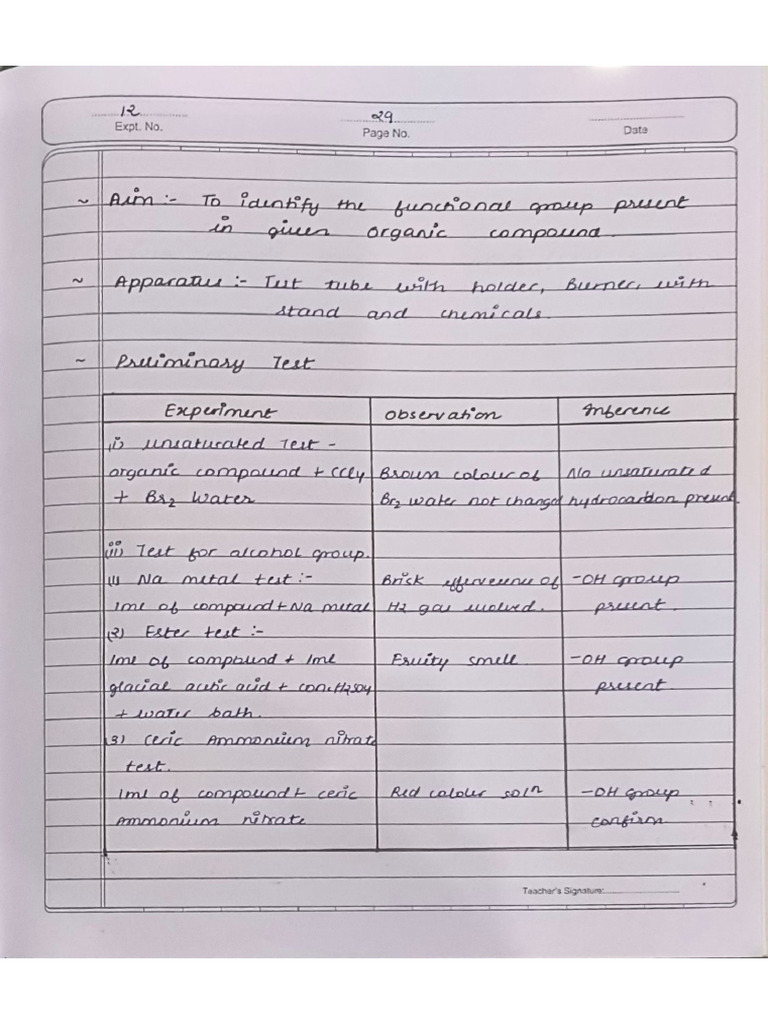 12
Expt. No.
29
Page No.
Date
~ Aim :- To identify the functional group present
in given organic compound.
~ Apparatus :- Test tube with holder, Burner, with
stand and chemicals.
~ Preliminary Test
Experiment Observation Inference
(i) Unsaturated Test -
organic compound + CCl4 Brown colour of No unsaturated
+ Br2 Water Br2 water not changed hydrocarbon present.
(ii) Test for alcohol group.
(1) Na metal test :- Brisk effervesence of -OH group
1ml of compound + Na metal H2 gas evolved. present.
(2) Ester test :-
1ml of compound + 1ml Fruity smell -OH group
glacial acetic acid + conc. H2SO4 present.
+ water bath.
(3) Ceric Ammonium nitrate
test.
1ml of compound + ceric Red colour soln -OH group
Ammonium nitrate confirm
Teacher's Signature: